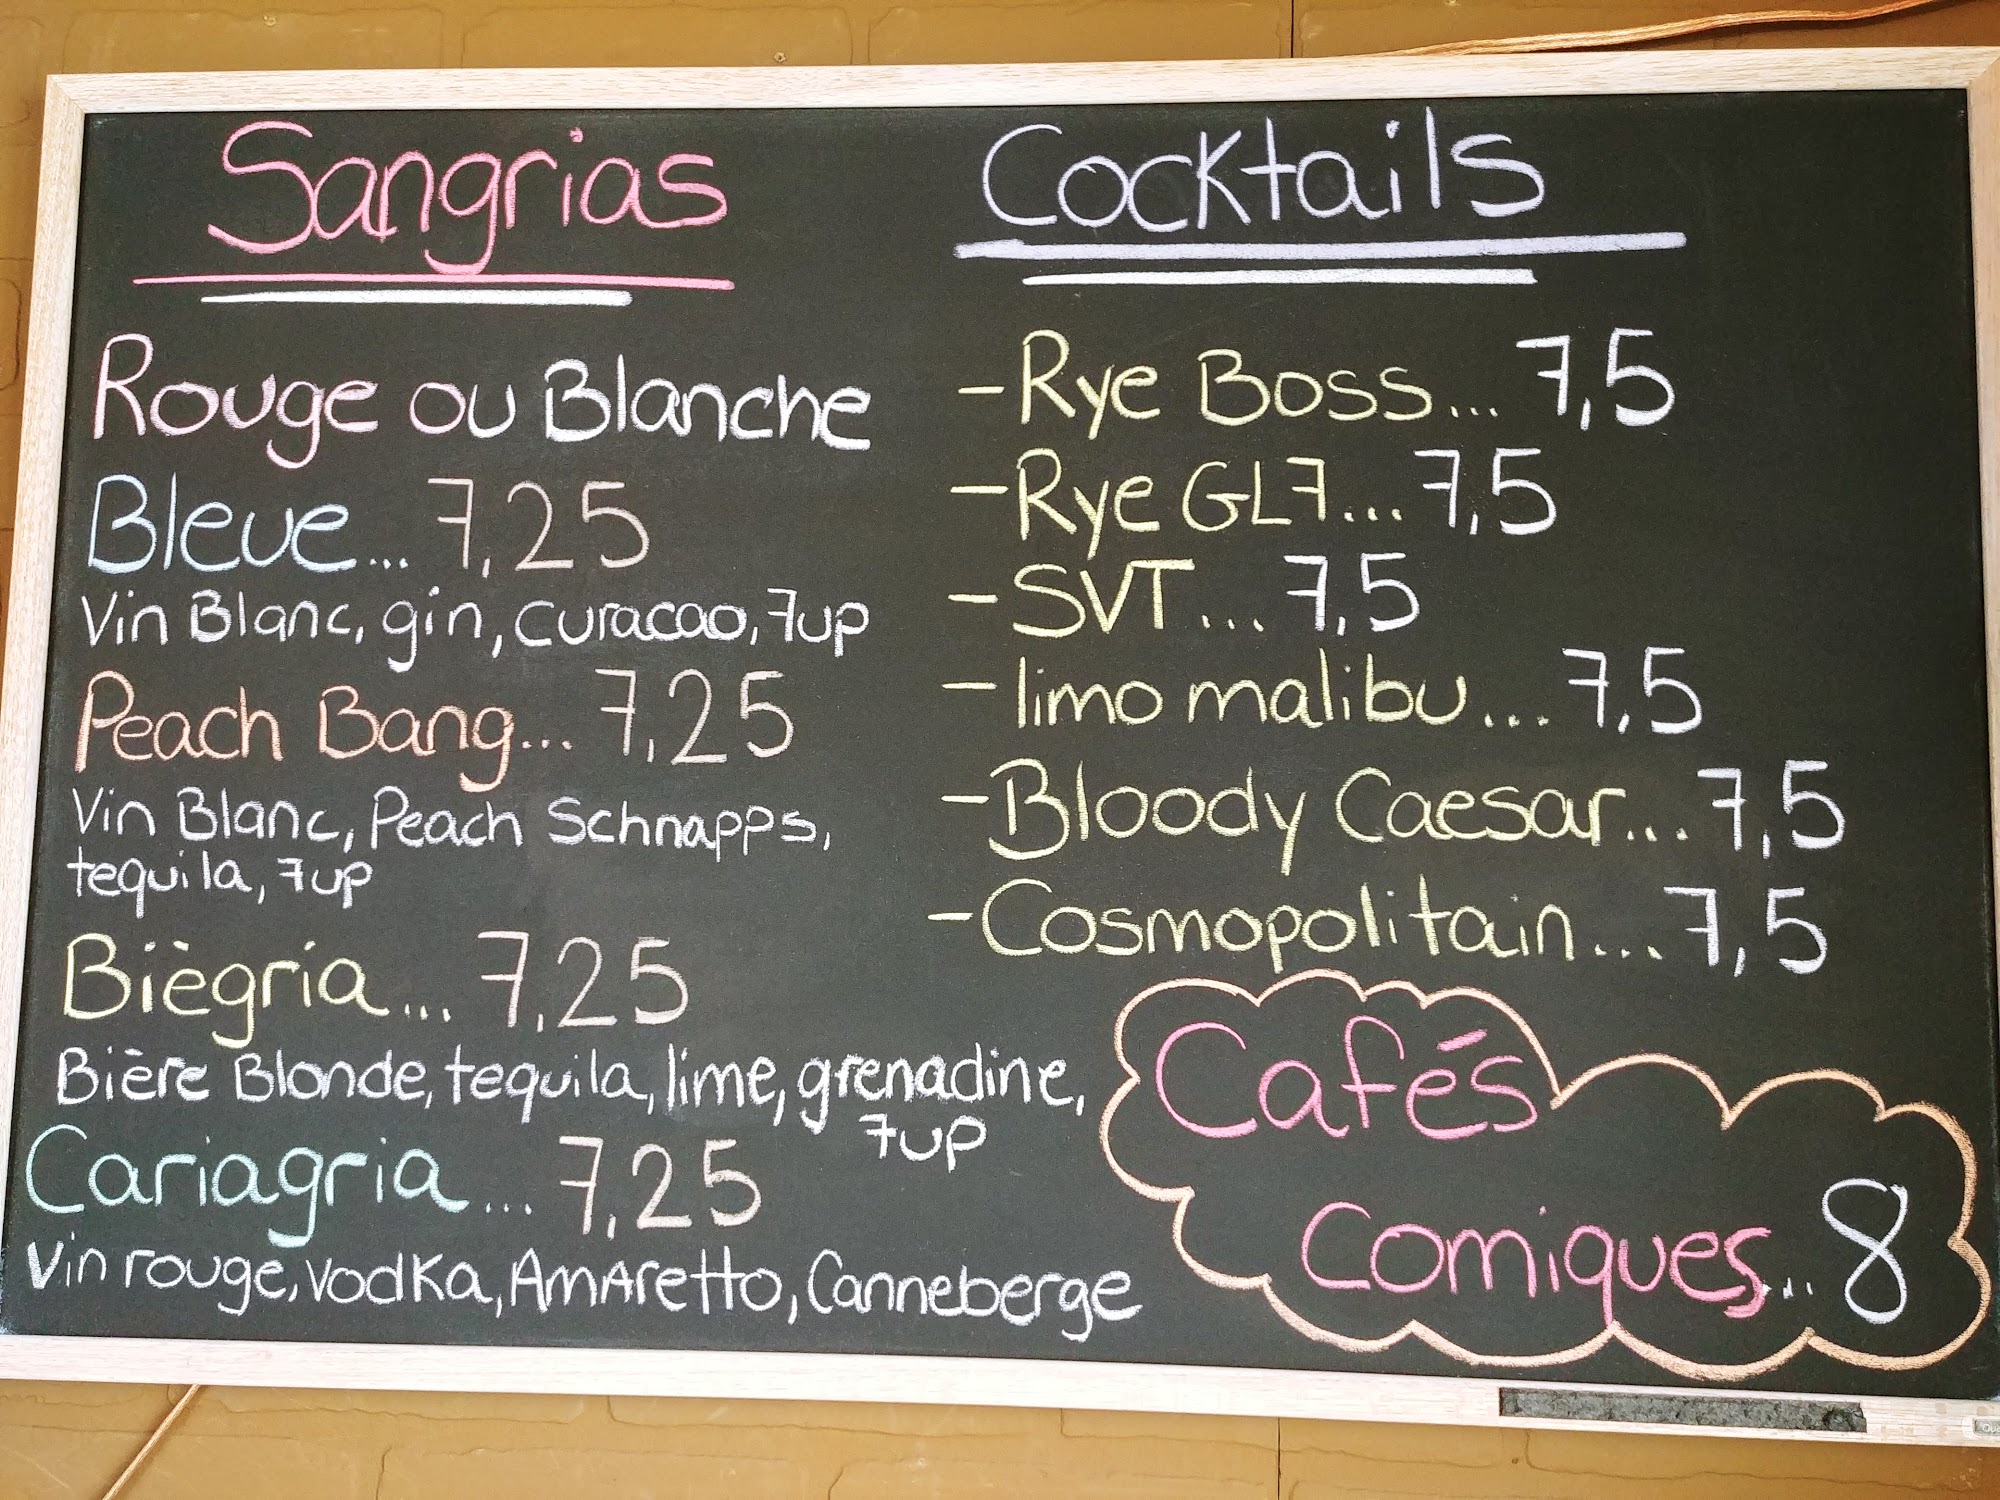 Sangrias
Rouge ou Blanche
Bleue... 7,25
Vin Blanc, gin, curacao, 7up
Peach Bang... 7,25
Vin Blanc, Peach Schnapps,
tequila, 7up
Biègria... 7,25
Bière Blonde, tequila, lime, grenadine,
7up
Cariagria... 7,25
Vin rouge, vodka, Amaretto, Canneberge
Cocktails
- Rye Boss... 7,5
- Rye GL7... 7,5
- SVT... 7,5
- limo malibu... 7,5
- Bloody Caesar... 7,5
- Cosmopolitain... 7,5
Cafés
Comiques... 8